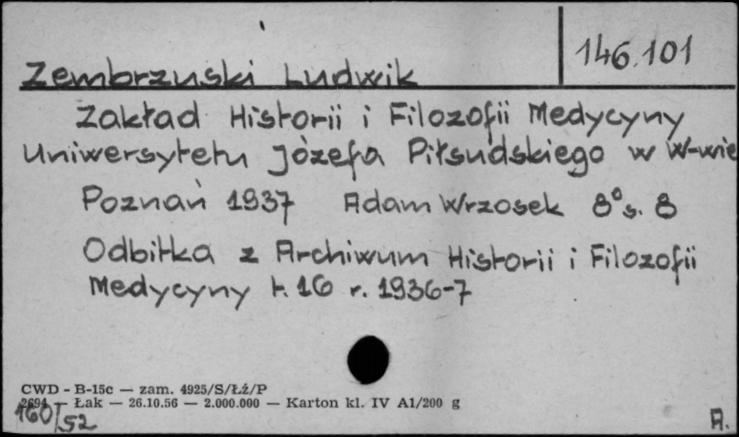 146.101
Zembrzuski Ludwik
Zakład Historii i Filozofii Medycyny
Uniwersytetu Józefa Piłsudskiego w W-wie
Poznań 1937 Adam Wrzosek 8° s. 8
Odbitka z Archiwum Historii i Filozofii
Medycyny t. 16 r. 1936-7
CWD - B-15c — zam. 4925/S/Łź/P
2694 — Łak — 26.10.56 — 2.000.000 — Karton kl. IV A1/200 g
160/52
A.